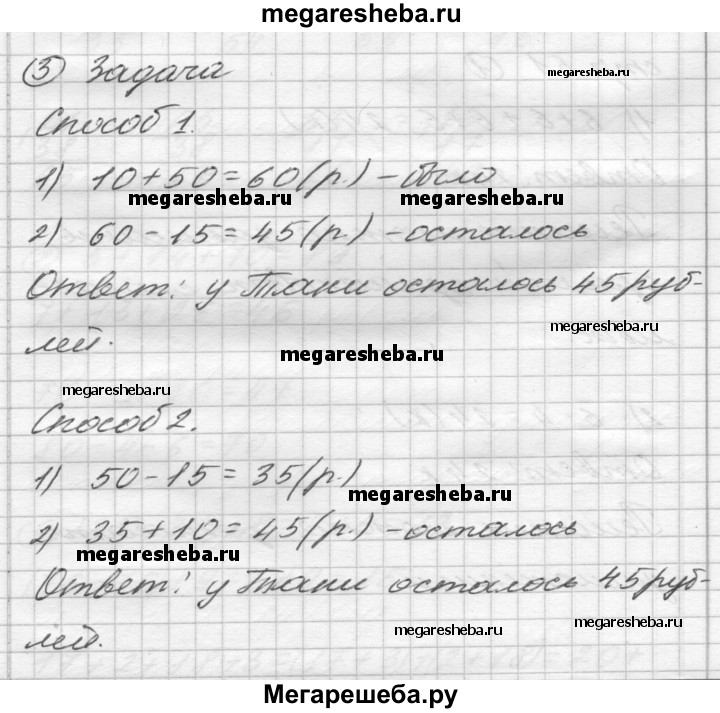 megaresheba.ru
③ Задача
megaresheba.ru
Способ 1.
1) 10+50=60(р.) - было
megaresheba.ru megaresheba.ru
2) 60-15=45(р.) - осталось
Ответ: у Тани осталось 45 руб-
megaresheba.ru
лей.
megaresheba.ru
megaresheba.ru
Способ 2.
1) 50-15=35(р.)
megaresheba.ru
2) 35+10=45(р.) - осталось
megaresheba.ru
Ответ: у Тани осталось 45 руб-
лей.
megaresheba.ru megaresheba.ru
Мегарешеба.ру